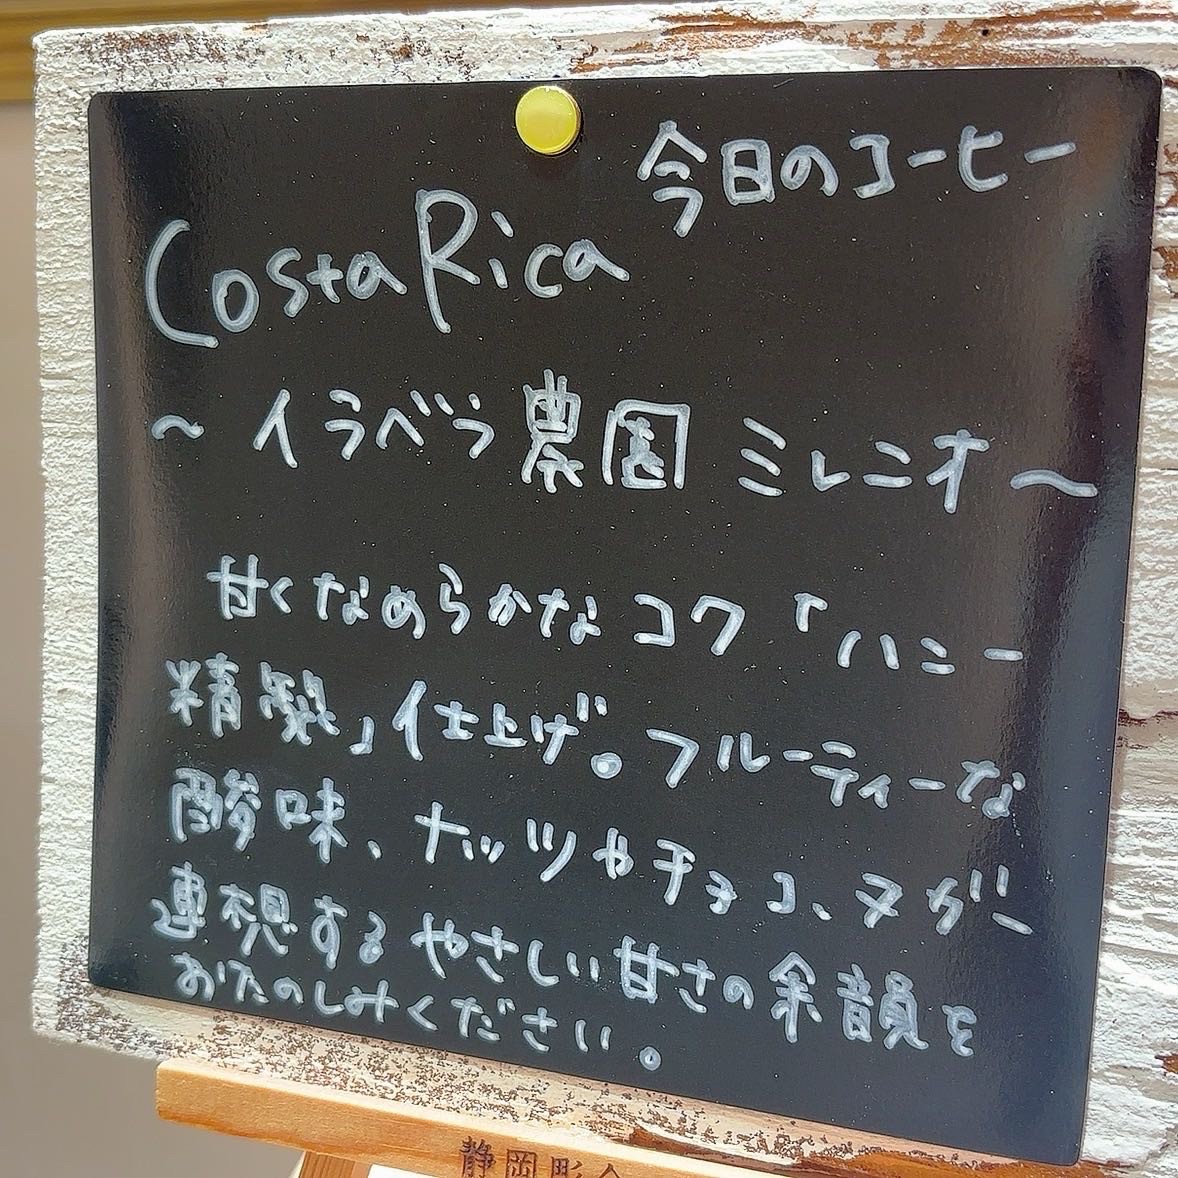 今日のコーヒー
Costa Rica
〜 イラベラ農園 ミレニオ〜
甘くなめらかなコク「ハニー
精製」仕上げ。フルーティーな
酸味、ナッツやチョコ、ヌガー
連想するやさしい甘さの余韻を
おたのしみください。
静岡彫